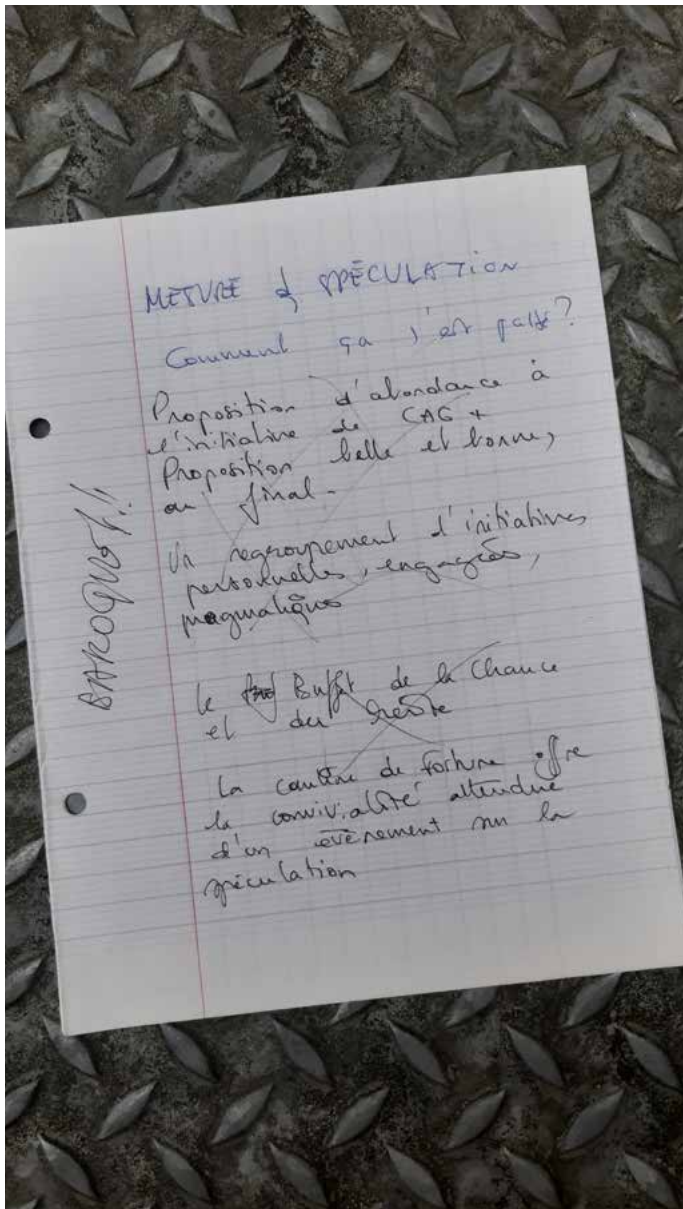 MESURE & SPÉCULATION
Comment ça s'est passé ?
Proposition d'abondance à
l'initiative de CAG +
Proposition belle et bonne,
au final -
Un regroupement d'initiatives
personnelles, engagées,
pragmatiques
Le Buffet de la Chance
et du
La cantine de fortune offre
la convivialité attendue
d'un évènement sur la
spéculation
BAROQUOT !!